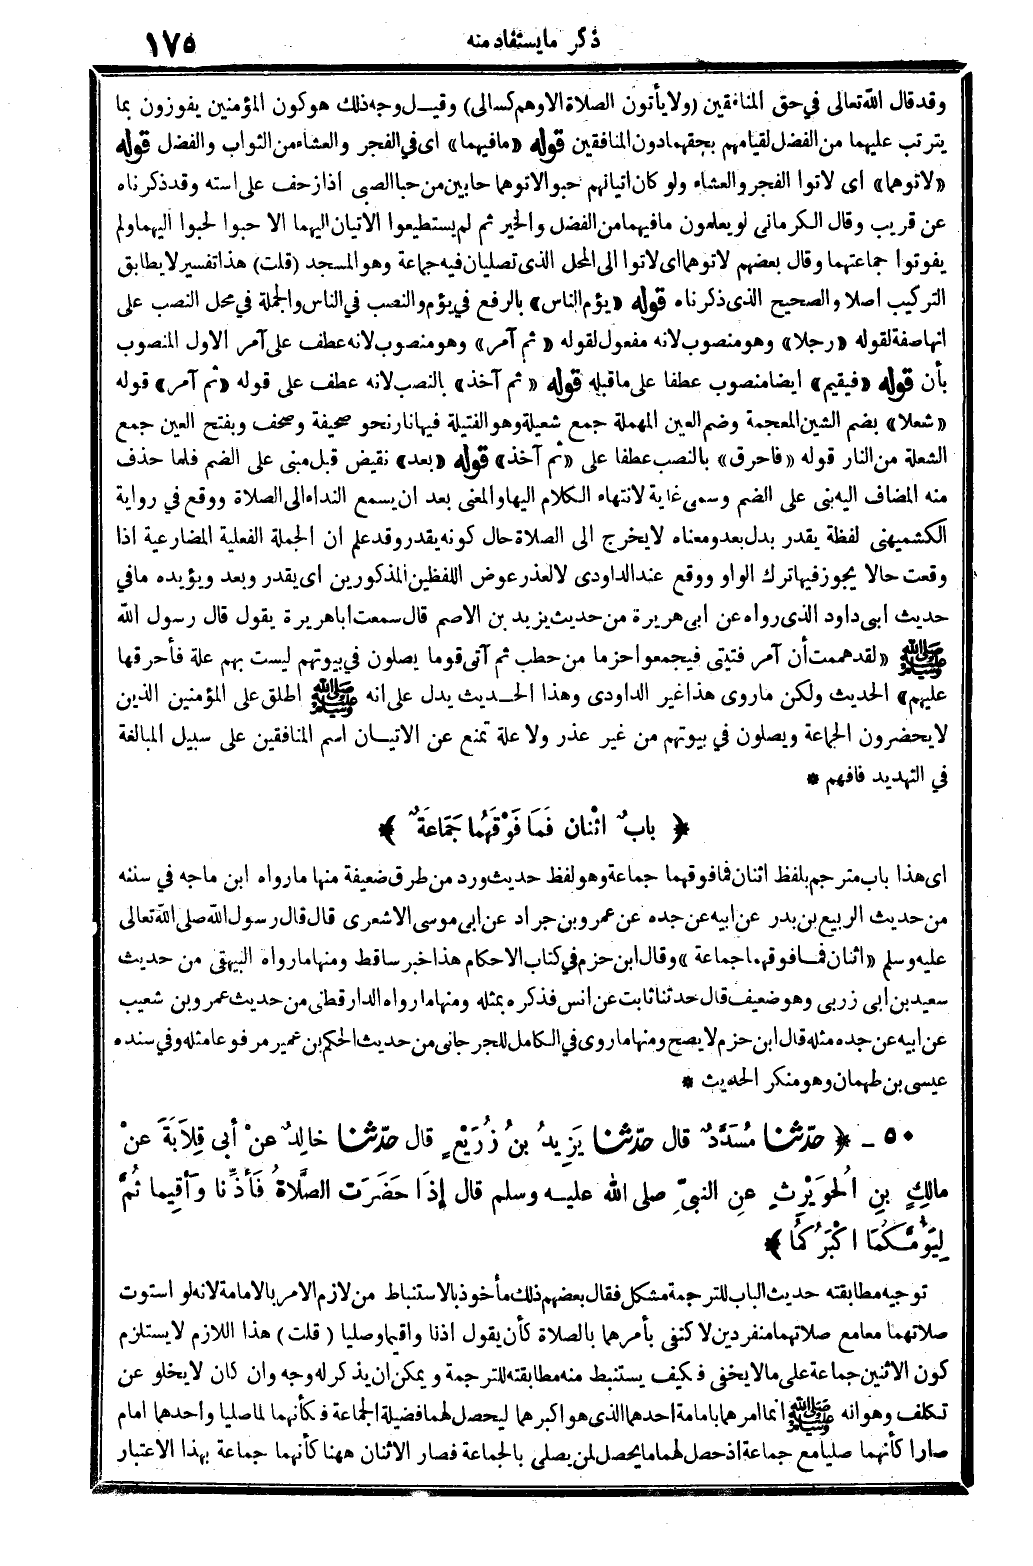 ذكر مايستفاد منه
١٧٥
وقدقال الله تعالى في حق المنافقين (ولايأتون الصلاة الاوهم كسالى) وقيل وجه ذلك هو كون المؤمنين يفوزون بما
يترتب عليهما من الفضل لقيامهم بحقهما دون المنافقين قوله «مافيهما» اى في الفجر والعشاء من الثواب والفضل قوله
«لاتوهما» اى لاتوا الفجر والعشاء ولو كان اتيانهم حبوا لاتوهما حابين من حبا الصبى اذا زحف على استه وقد ذكرناه
عن قريب وقال الكرمانى لو يعلمون مافيهما من الفضل والخير ثم لم يستطيعوا الاتيان اليهما الا حبوا لحبوا اليهما ولم
يفوتوا جماعتهما وقال بعضهم لاتوهما اى لاتوا الى المحل الذى تصليان فيه جماعة وهو المسجد (قلت) هذا تفسير لايطابق
التركيب اصلا والصحيح الذى ذكرناه قوله «يؤم الناس» بالرفع في يؤم والنصب في الناس والجملة في محل النصب على
انها صفة لقوله «رجلا» وهو منصوب لانه مفعول لقوله «ثم آمر» وهو منصوب لانه عطف على آمر الاول المنصوب
بأن قوله «فيقيم» ايضا منصوب عطفا على ماقبله قوله «ثم آخذ» بالنصب لانه عطف على قوله «ثم آمر» قوله
«شعلا» بضم الشين المعجمة وضم العين المهملة جمع شعيلة وهو الفتيلة فيها نار نحو صحيفة وصحف وبفتح العين جمع
الشعلة من النار قوله «فاحرق» بالنصب عطفا على «ثم آخذ» قوله «بعد» نقيض قبل مبنى على الضم فلما حذف
منه المضاف اليه بنى على الضم وسمى غاية لانتهاء الكلام اليها والمعنى بعد ان يسمع النداء الى الصلاة ووقع في رواية
الكشميهنى لفظة يقدر بدل بعد ومعناه لايخرج الى الصلاة حال كونه يقدر وقد علم ان الجملة الفعلية المضارعية اذا
وقعت حالا يجوز فيها ترك الواو ووقع عند الداودى لالعذر عوض اللفظين المذكورين اى يقدر وبعد ويؤيده مافي
حديث ابى داود الذى رواه عن ابى هريرة من حديث يزيد بن الاصم قال سمعت ابا هريرة يقول قال رسول الله
ﷺ «لقد هممت أن آمر فتيتى فيجمعوا حزما من حطب ثم آتى قوما يصلون في بيوتهم ليست بهم علة فأحرقها
عليهم» الحديث ولكن ماروى هذا غير الداودى وهذا الحديث يدل على انه ﷺ اطلق على المؤمنين الذين
لايحضرون الجماعة ويصلون في بيوتهم من غير عذر ولا علة تمنع عن الاتيان اسم المنافقين على سبيل المبالغة
في التهديد فافهم *
﴿ بابٌ اثْنان فَمَا فَوْقَهُما جَمَاعَةٌ ﴾
اى هذا باب مترجم بلفظ اثنان فمافوقهما جماعة وهو لفظ حديث ورد من طرق ضعيفة منها مارواه ابن ماجه في سننه
من حديث الربيع بن بدر عن ابيه عن جده عن عمرو بن جراد عن ابى موسى الاشعرى قال قال رسول الله صلى الله تعالى
عليه وسلم «اثنان فما فوقهما جماعة» وقال ابن حزم في كتاب الاحكام هذا خبر ساقط ومنها مارواه البيهقى من حديث
سعيد بن ابى زربى وهو ضعيف قال حدثنا ثابت عن انس فذكره بمثله ومنها مارواه الدارقطنى من حديث عمرو بن شعيب
عن ابيه عن جده مثله قال ابن حزم لايصح ومنها ماروى في الكامل للجرجانى من حديث الحكم بن عمير مرفوعا مثله وفي سنده
عيسى بن طهمان وهو منكر الحديث *
٥٠ - ﴿ حدّثنا مُسَدَّدٌ قال حدّثنا يَزِيدُ بنُ زُرَيْعٍ قال حدّثنا خالِدٌ عنْ أبى قِلَابَةَ عنْ
مالِكِ بنِ الحُوَيْرِثِ عنِ النبىِّ صلى الله عليه وسلم قال إذَا حَضَرَت الصَّلاَةُ فَأَذِّنا وَأقِيما ثُمَّ
لِيَؤُمَّكُمَا اكْبَرُكُمَا ﴾
توجيه مطابقته حديث الباب للترجمة مشكل فقال بعضهم ذلك مأخوذ بالاستنباط من لازم الامر بالامامة لانه لو استوت
صلاتهما معا مع صلاتهما منفردين لا كتفى بأمرهما بالصلاة كأن يقول اذنا واقيما وصليا (قلت) هذا اللازم لايستلزم
كون الاثنين جماعة على مالايخفى فكيف يستنبط منه مطابقته للترجمة ويمكن ان يذكر له وجه وان كان لايخلو عن
تكلف وهو انه ﷺ انما امرهما بامامة احدهما الذى هو اكبرهما ليحصل لهما فضيلة الجماعة فكأنهما لما صليا واحدهما امام
صارا كأنهما صليا مع جماعة اذ حصل لهما مايحصل لمن يصلى بالجماعة فصار الاثنان ههنا كأنهما جماعة بهذا الاعتبار